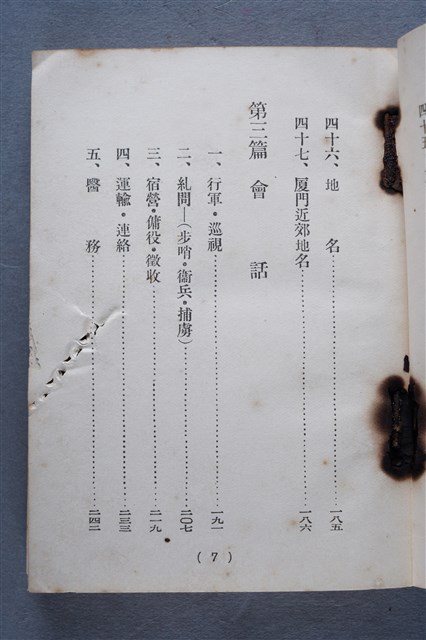 四十六、地　名……一八五
四十七、厦門近郊地名……一八六
第三篇　會　話
一、行軍・巡視……一九一
二、糺問―(步哨・衞兵・捕虜)……二〇七
三、宿營・傭役・徵收……二一九
四、運輸・連絡……二三三
五、醫　務……二四二
(7)